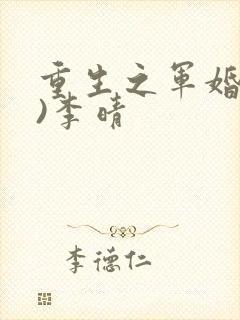 重生之军婚
)李晴
李德仁